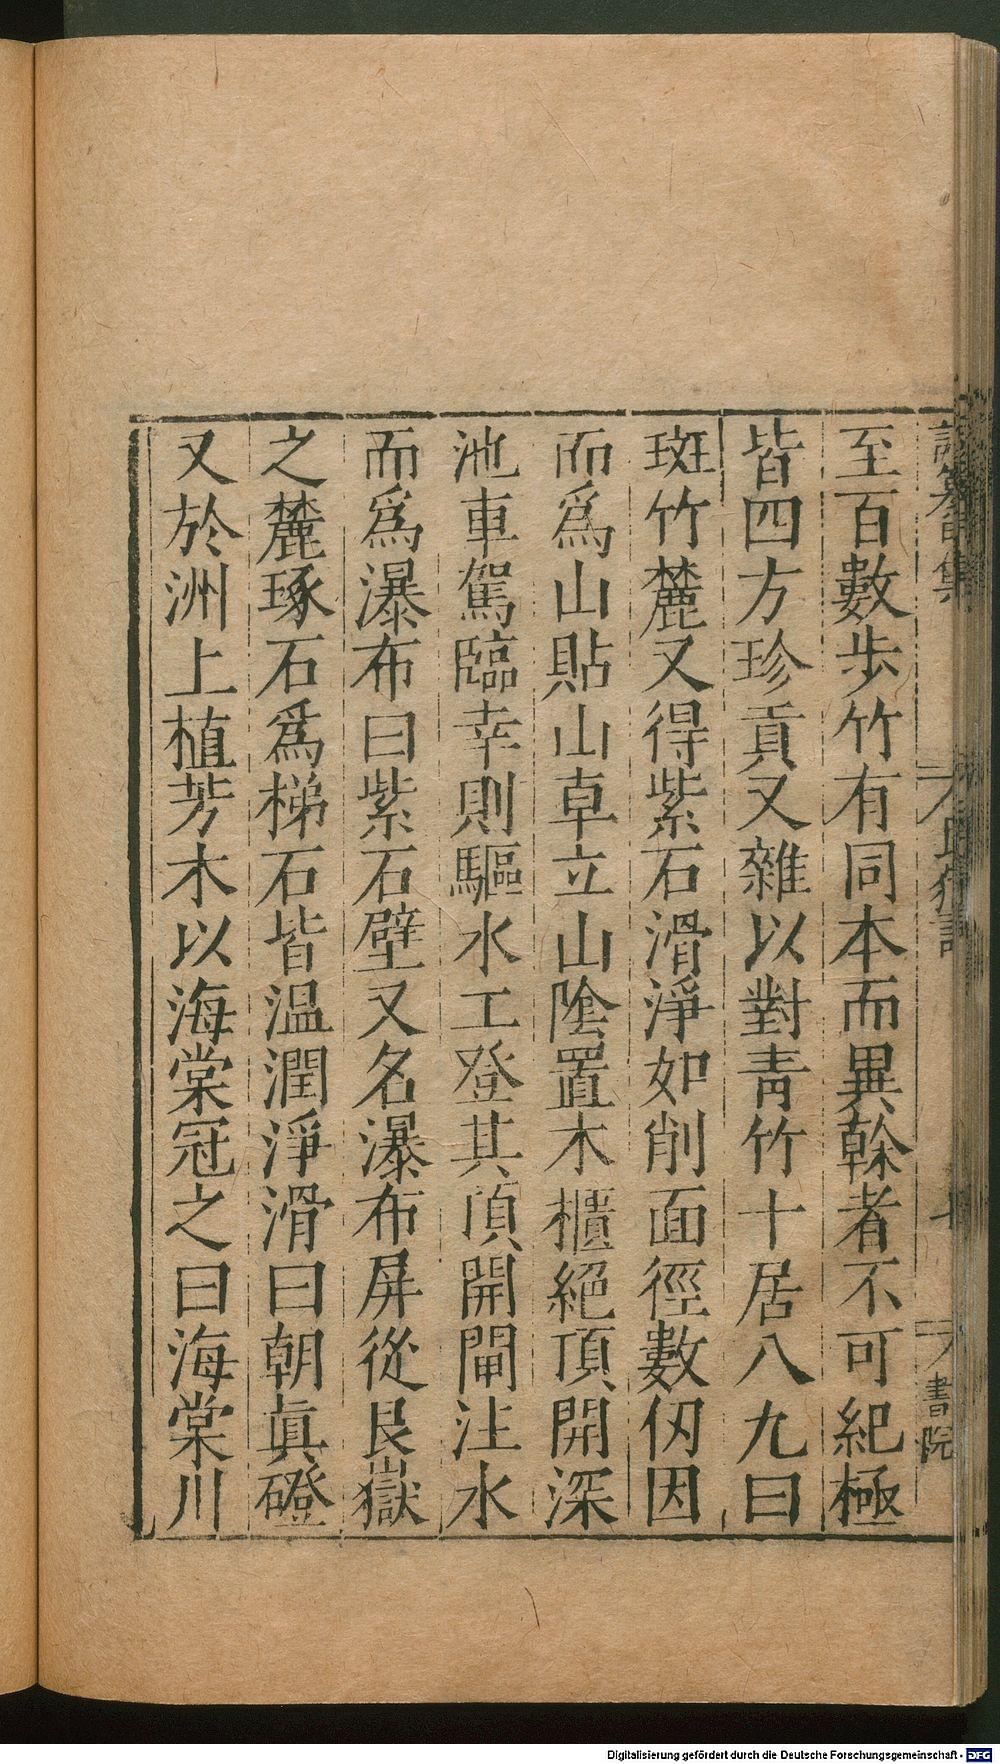 至百數歩竹有同本而異榦者不可紀極
皆四方珍貢又雜以對青竹十居八九曰
斑竹麓又得紫石滑淨如削面徑數仭因
而爲山貼山卓立山陰置木櫃絕頂開深
池車駕臨幸則驅水工登其頂開閘注水
而爲瀑布曰紫石壁又名瀑布屏從艮嶽
之麓琢石爲梯石皆温潤淨滑曰朝眞磴
又於洲上植芳木以海棠冠之曰海棠川
書院
Digitalisierung gefördert durch die Deutsche Forschungsgemeinschaft - DFG